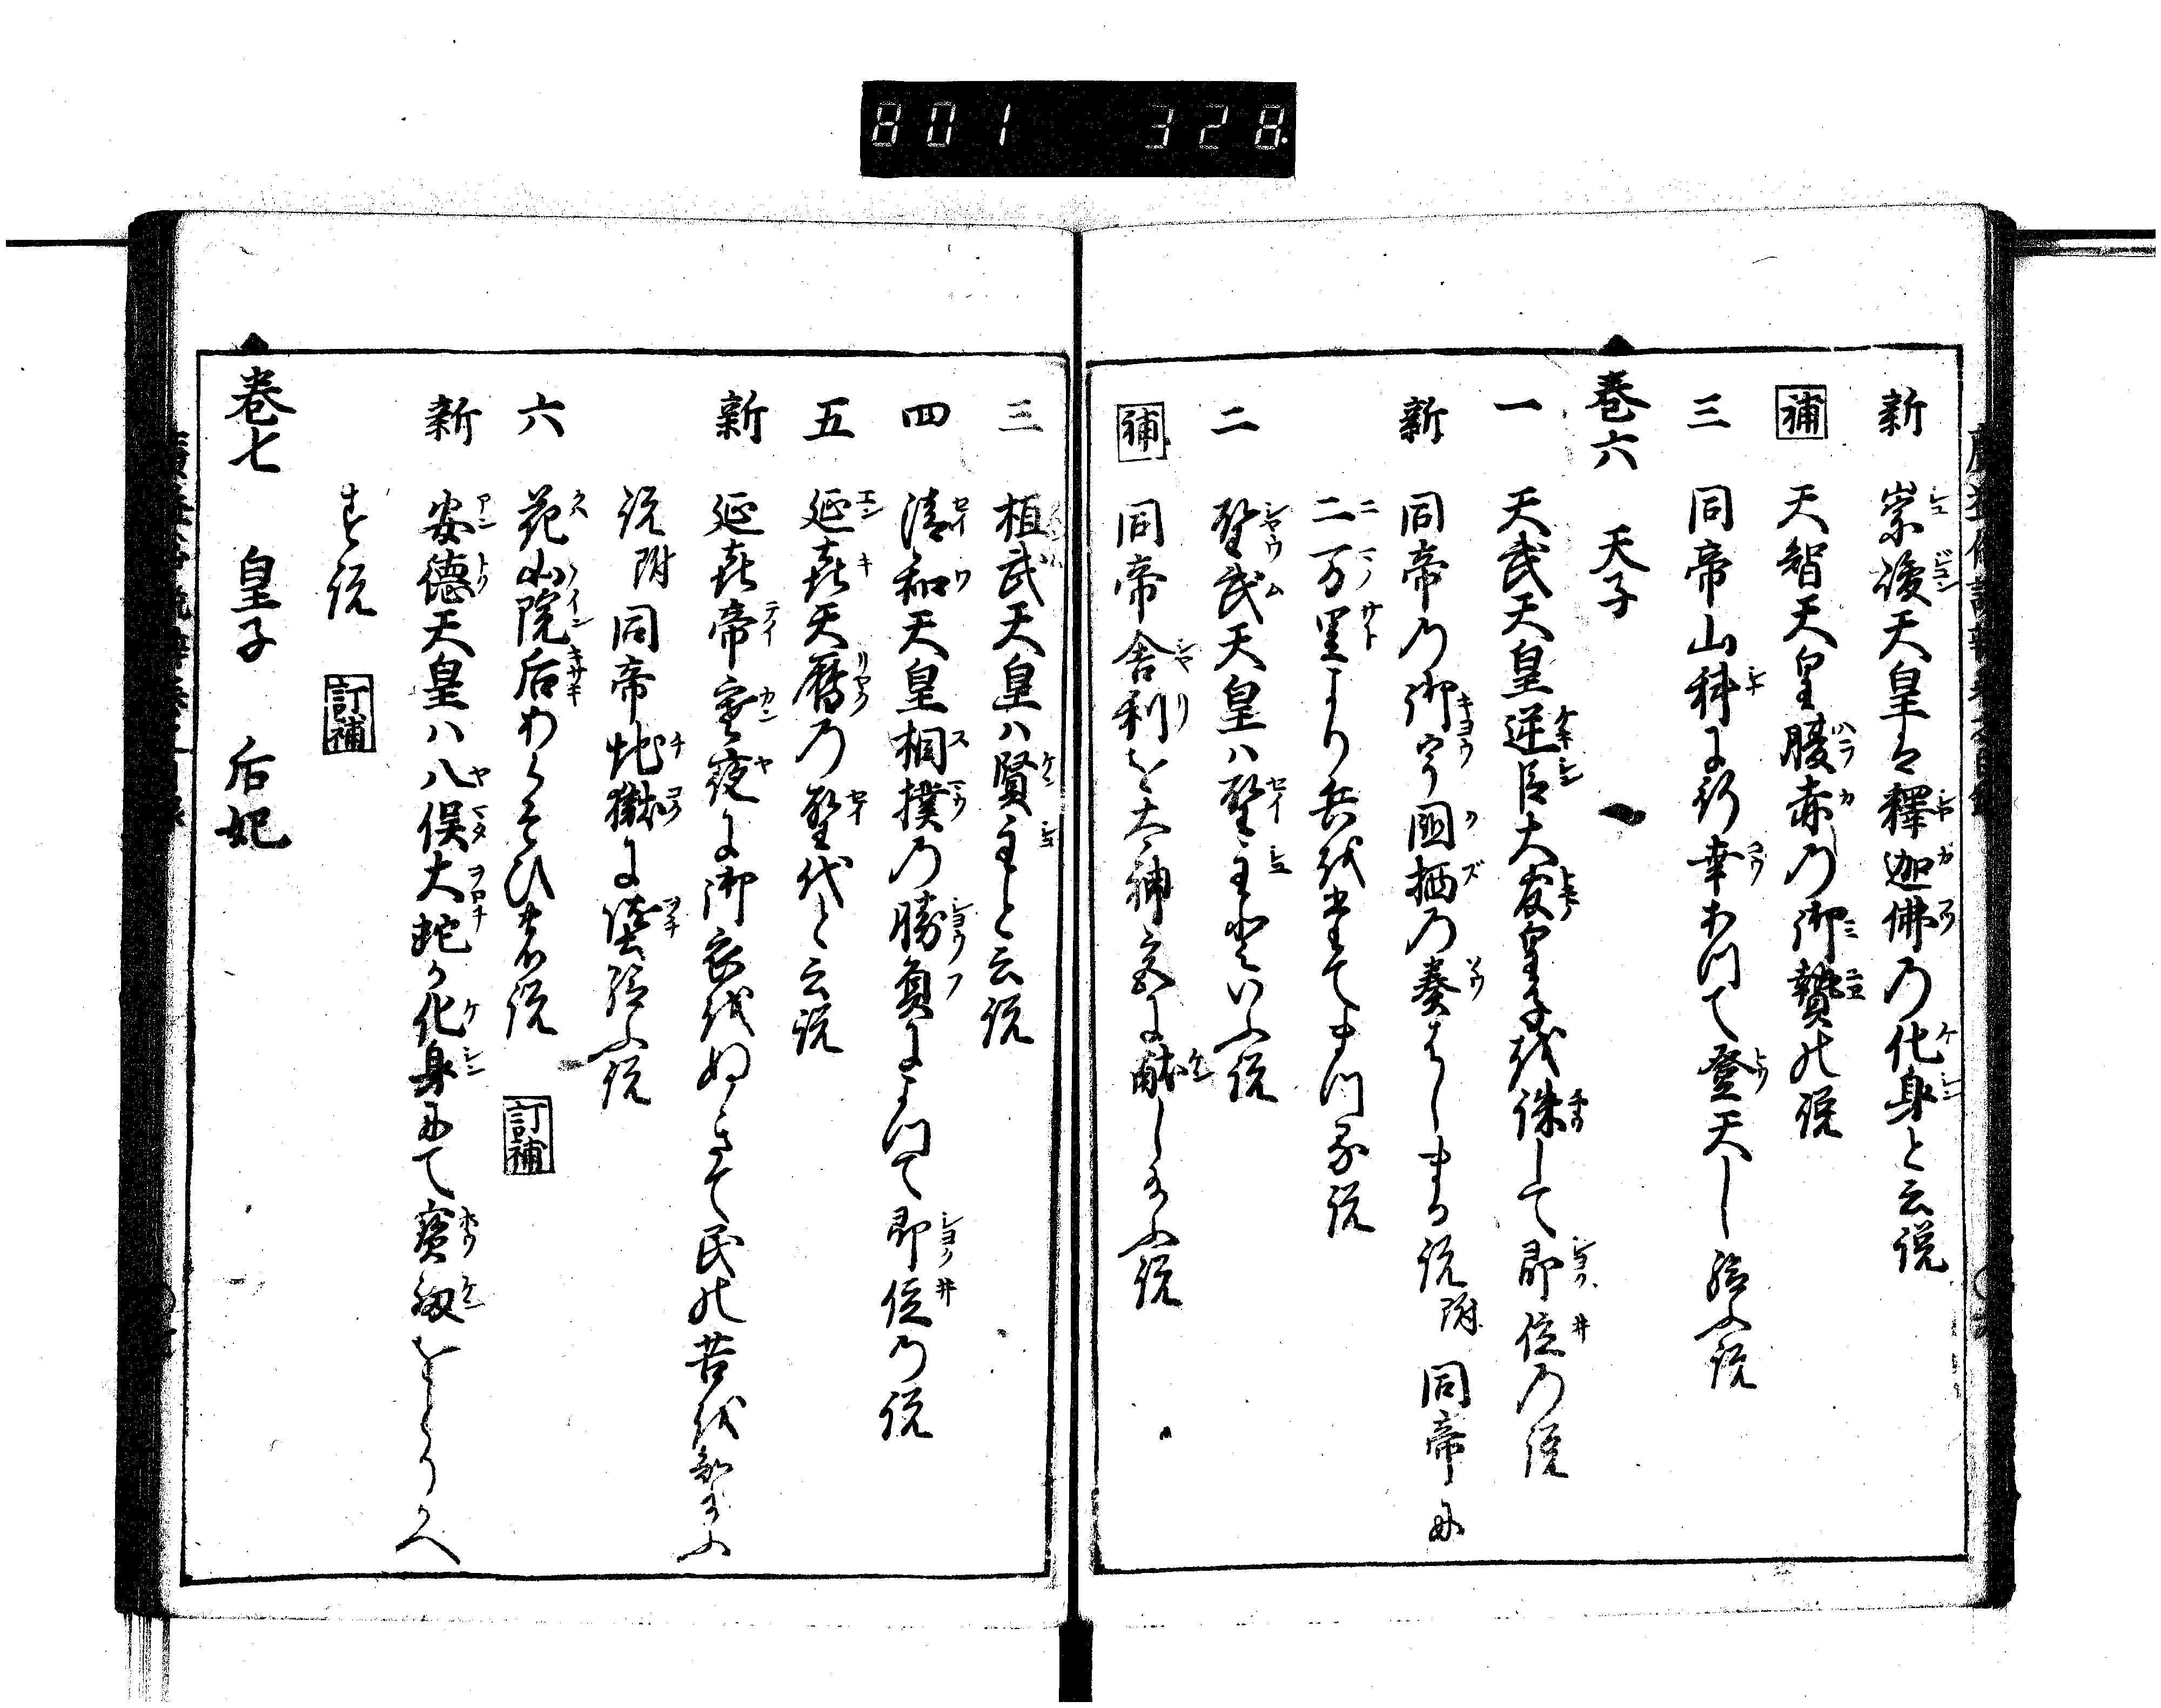 801 328
新 崇峻天皇は釋迦佛の化身と云説
補 天智天皇腹赤の御贄の説
三 同帝山科に行幸あつて登天し給ふ説
巻六 天子
一 天武天皇逆臣大友皇子を誅して即位の説
新 同帝の御宇国栖の奏はしまる説附同帝に
二万里より兵を奉てまつる説
二 聖武天皇ハ聖主といふ説
補 同帝舎利を太神宮に献し給ふ説
三 桓武天皇ハ賢主と云説
四 清和天皇相撲の勝負によつて即位の説
五 延喜天暦の聖代と云説
新 延喜帝寒夜に御衣をぬきて民の苦を知給ふ
説附同帝地獄に墮給ふ説
六 花山院后あらそひ の説 訂補
新 安徳天皇ハ八俣大蛇か化身にて寳劔をとりかへ
す説 訂補
巻七 皇子 后妃